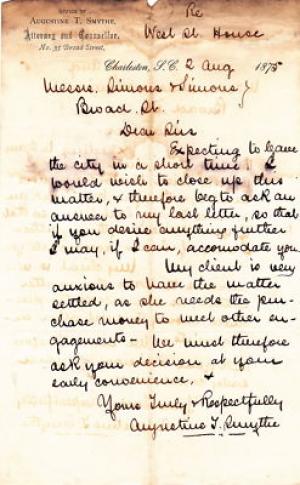 Re
OFFICE OF
AUGUSTINE T. SMYTHE,
West St. House
Attorney and Counsellor,
No. 35 Broad Street,
Charleston, S.C. 2 Aug 1875
Messrs. Simons & Simons }
Broad St.
Dear Sirs
Expecting to leave
the city in a short time, I
would wish to close up this
matter, & therefore beg to ask an
answer to my last letter, so that
if you desire anything further
I may, if I can, accomodate you.
My client is very
anxious to have the matter
settled, as she needs the pur-
chase money to meet other en-
gagements - We must therefore
ask your decision at your
early convenience, &
Yours Truly & Respectfully
Augustine T. Smythe